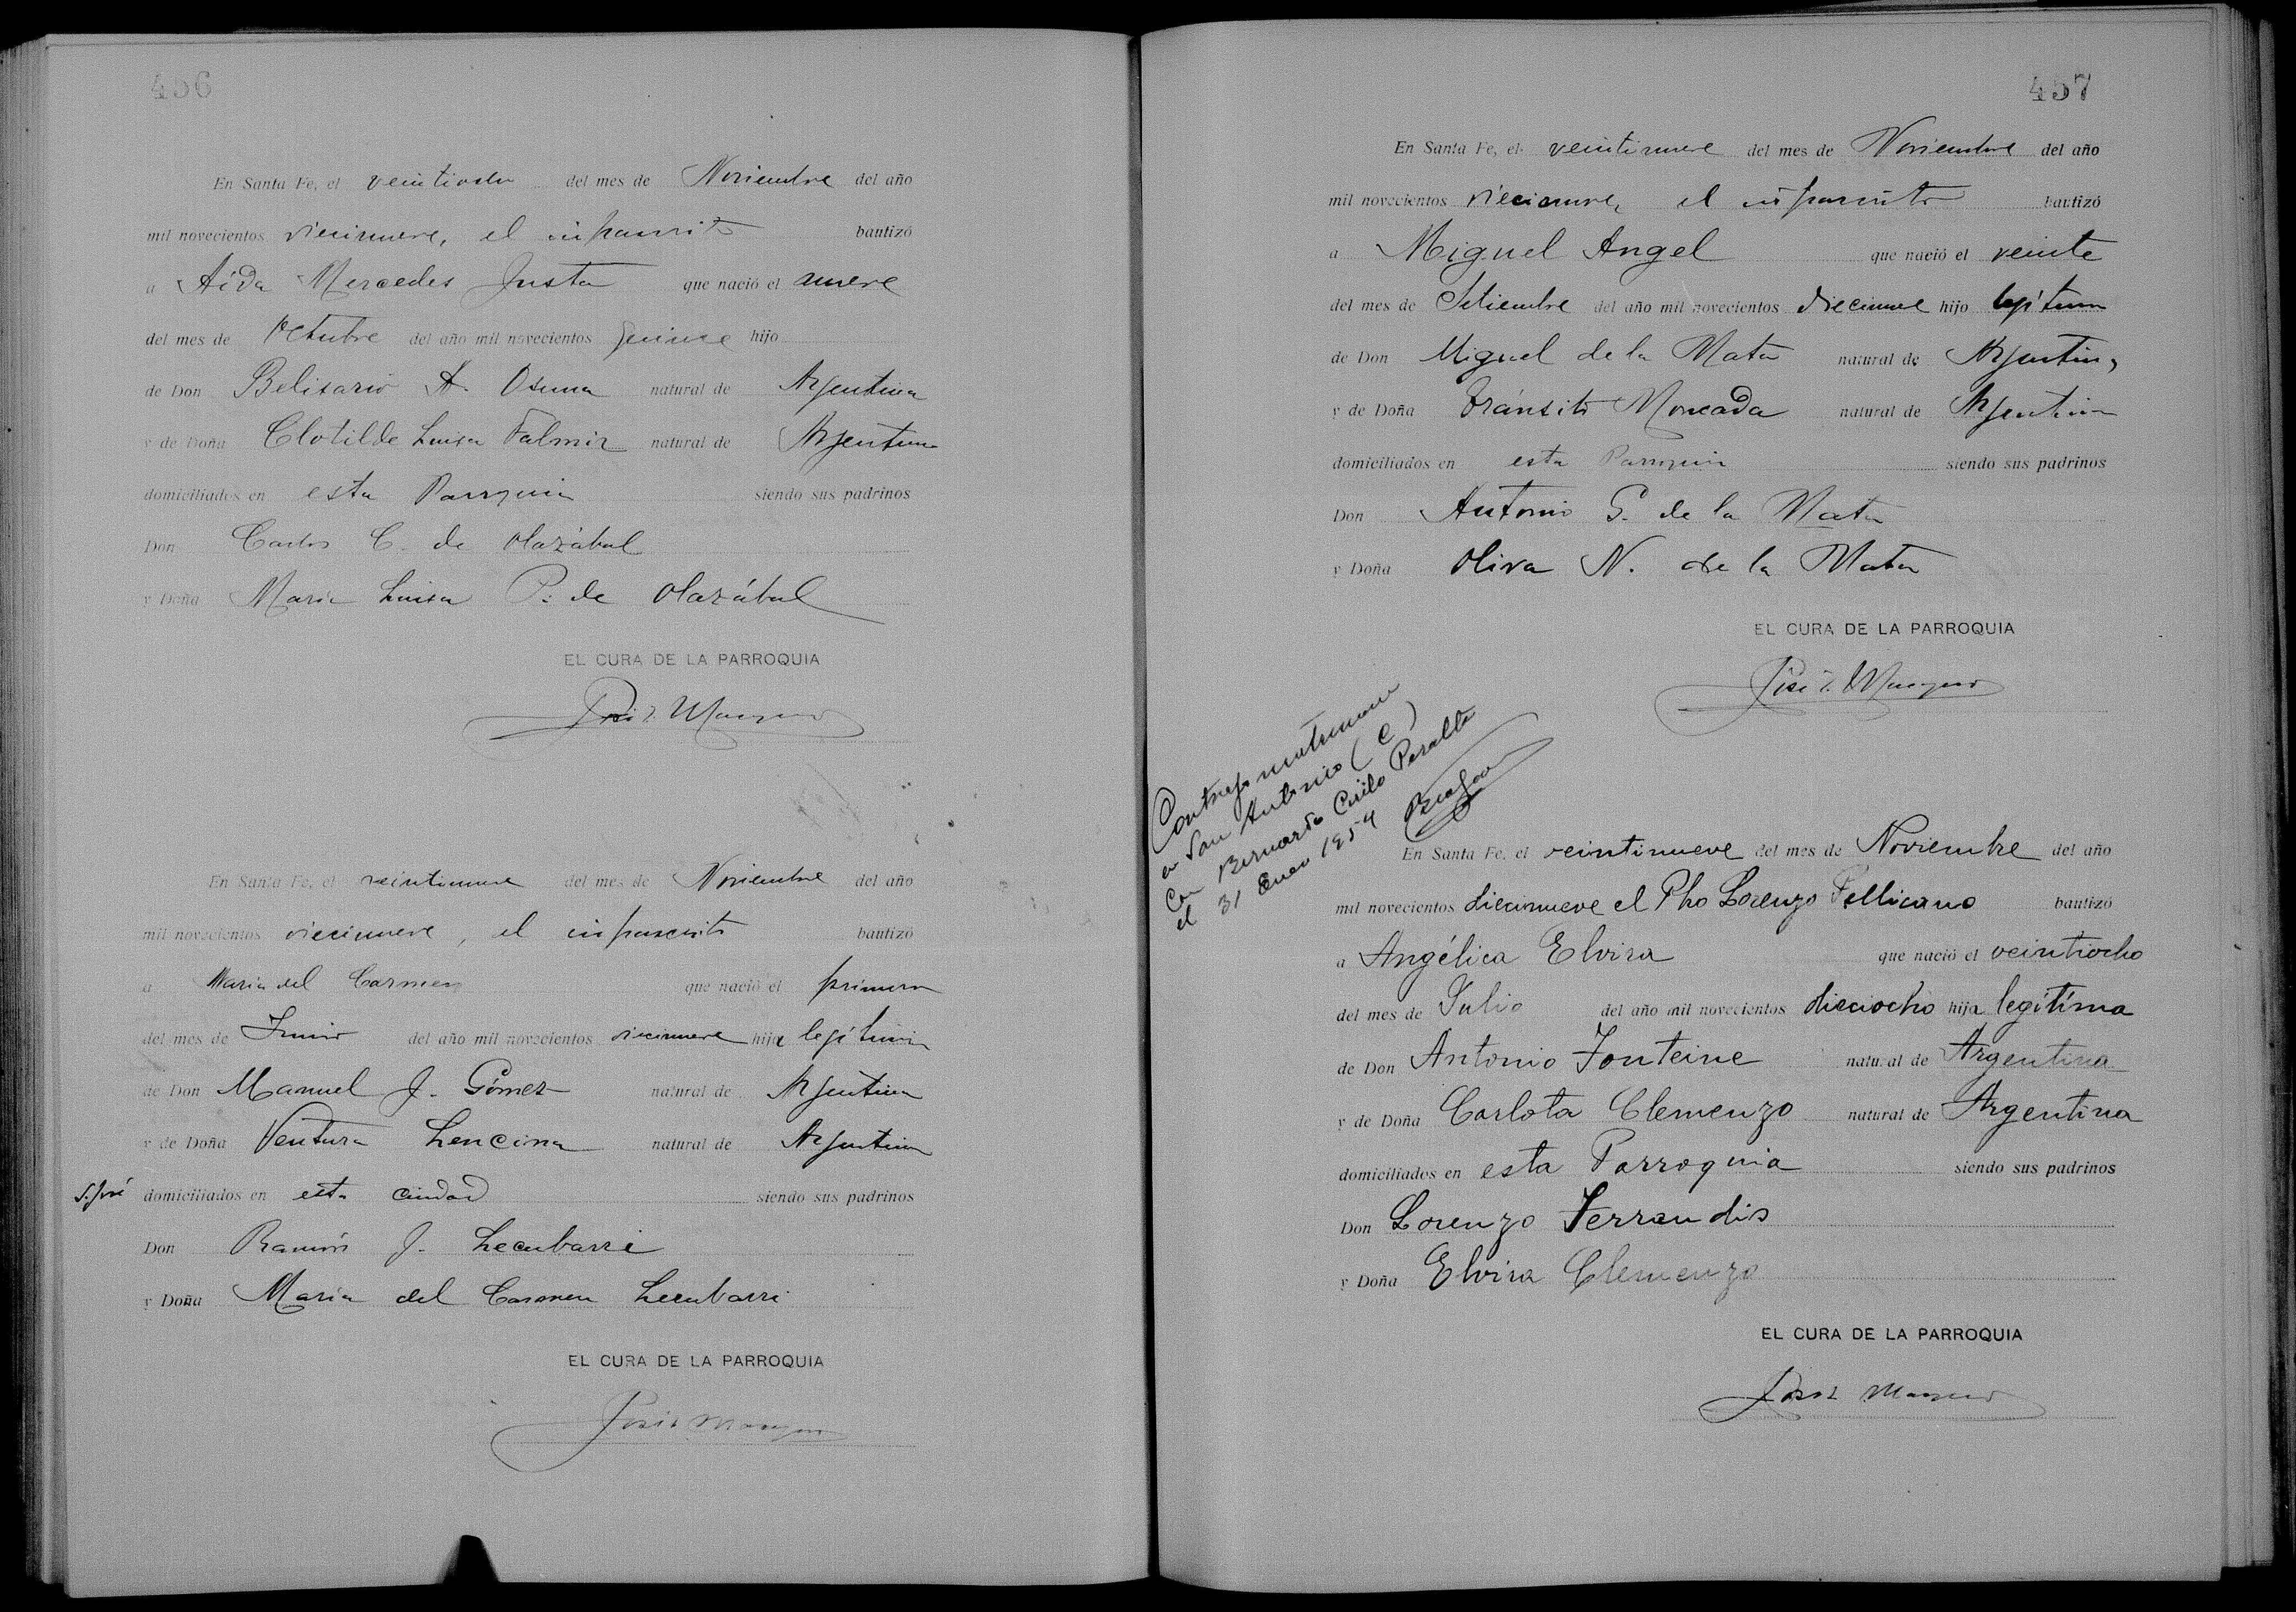 456
En Santa Fe, el veintiocho del mes de Noviembre del año
mil novecientos diecinueve, el infrascrito bautizó
a Aída Mercedes Justa que nació el nueve
del mes de Octubre del año mil novecientos quince hijo
de Don Belisario A. Osuna natural de Argentina
y de Doña Clotilde Luisa natural de Argentina
domiciliados en esta Parroquia siendo sus padrinos
Don Carlos C. de Olazábal
y Doña María Luisa P. de Olazábal
EL CURA DE LA PARROQUIA
En Santa Fe, el veintinueve del mes de Noviembre del año
mil novecientos diecinueve, el infrascrito bautizó
a María del Carmen que nació el primero
del mes de Junio del año mil novecientos diecinueve hija legítima
de Don Manuel J. Gómez natural de Argentina
y de Doña Ventura Lencina natural de Argentina
S. José domiciliados en esta ciudad siendo sus padrinos
Don Ramón J. Lecubarri
y Doña María del Carmen Lecubarri
EL CURA DE LA PARROQUIA
457
En Santa Fe, el veintinueve del mes de Noviembre del año
mil novecientos diecinueve, el infrascrito bautizó
a Miguel Angel que nació el veinte
del mes de Setiembre del año mil novecientos diecinueve hijo legítimo
de Don Miguel de la Mata natural de Argentina
y de Doña Tránsito Moncada natural de Argentina
domiciliados en esta Parroquia siendo sus padrinos
Don Antonio G. de la Mata
y Doña Oliva N. de la Mata
EL CURA DE LA PARROQUIA
Contrajo matrimonio
en San Antonio (C)
con Bernardo Cirilo Peralta
el 31 Enero 1954
En Santa Fe, el veintinueve del mes de Noviembre del año
mil novecientos diecinueve el Pbo Lorenzo Pellicano bautizó
a Angélica Elvira que nació el veintiocho
del mes de Julio del año mil novecientos dieciocho hija legítima
de Don Antonio Fonteine natural de Argentina
y de Doña Carlota Clemenzo natural de Argentina
domiciliados en esta Parroquia siendo sus padrinos
Don Lorenzo Ferrandis
y Doña Elvira Clemenzo
EL CURA DE LA PARROQUIA